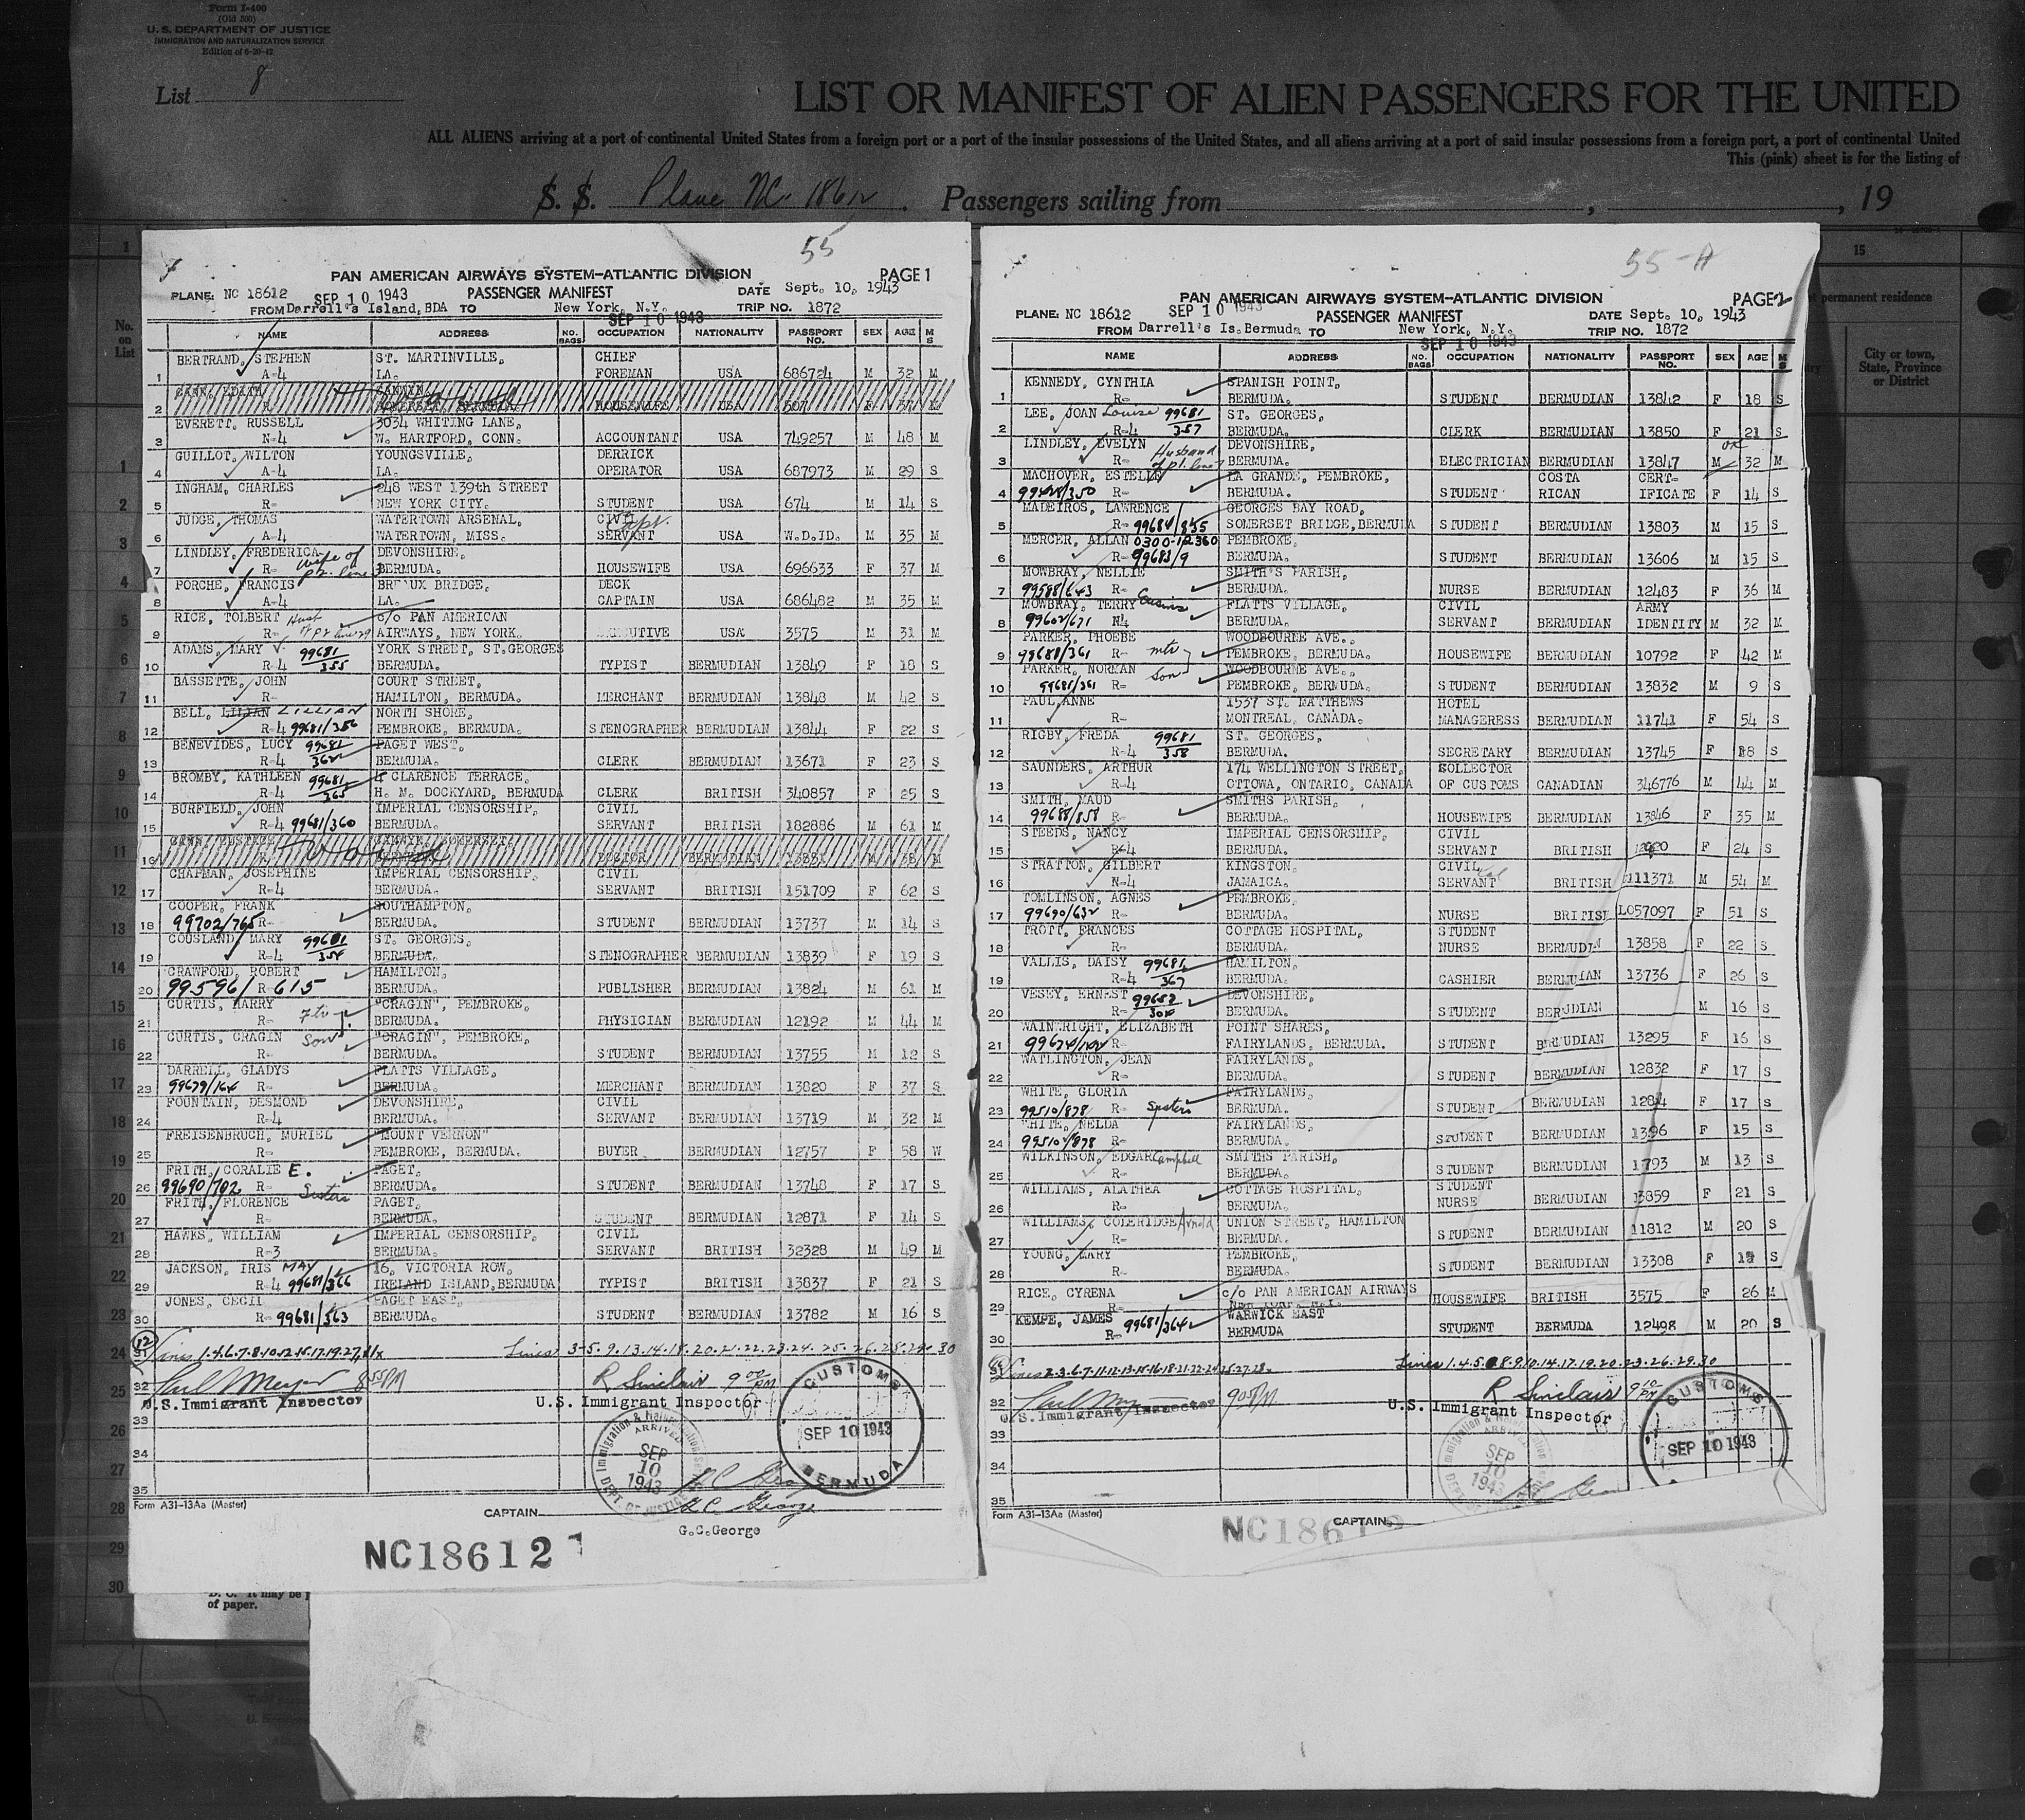 Form I-400
(Old 500)
U. S. DEPARTMENT OF JUSTICE
IMMIGRATION AND NATURALIZATION SERVICE
Edition of 6-20-42
List 8
LIST OR MANIFEST OF ALIEN PASSENGERS FOR THE UNITED
ALL ALIENS arriving at a port of continental United States from a foreign port or a port of the insular possessions of the United States, and all aliens arriving at a port of said insular possessions from a foreign port, a port of continental United
This (pink) sheet is for the listing of
S. S. Plane NC. 18612. Passengers sailing from , , 19
55
PAN AMERICAN AIRWAYS SYSTEM—ATLANTIC DIVISION PAGE 1
PLANE: NC 18612 SEP 10 1943 PASSENGER MANIFEST DATE Sept. 10, 1943
FROM Darrell's Island, BDA TO New York, N.Y. TRIP NO. 1872
SEP 10 1943
NAME ADDRESS NO. BAGS OCCUPATION NATIONALITY PASSPORT NO. SEX AGE M S
BERTRAND, STEPHEN ST. MARTINVILLE, CHIEF
1 A-4 LA. FOREMAN USA 686724 M 32 M
CANN, EDITH
2 HOUSEWIFE USA 507 F 37 M
EVERETT, RUSSELL 3034 WHITING LANE,
3 N-4 W. HARTFORD, CONN. ACCOUNTANT USA 749257 M 48 M
GUILLOT, WILTON YOUNGSVILLE, DERRICK
4 A-4 LA. OPERATOR USA 687973 M 29 S
INGHAM, CHARLES 248 WEST 139th STREET
5 R- NEW YORK CITY. STUDENT USA 674 M 14 S
JUDGE, THOMAS WATERTOWN ARSENAL, CIVIL Capt.
6 A-4 WATERTOWN, MISS. SERVANT USA W.D.ID. M 35 M
LINDLEY, FREDERICA wife of DEVONSHIRE,
7 R- p2. line 3 BERMUDA. HOUSEWIFE USA 696633 F 37 M
PORCHE, FRANCIS BREAUX BRIDGE, DECK
8 A-4 LA. CAPTAIN USA 686482 M 35 M
RICE, TOLBERT Husb c/o PAN AMERICAN
9 R- of p2 line 29 AIRWAYS, NEW YORK. EXECUTIVE USA 3575 M 31 M
ADAMS, MARY V. 99681 YORK STREET, ST.GEORGES
10 R-4 355 BERMUDA. TYPIST BERMUDIAN 13849 F 18 S
BASSETTE, JOHN COURT STREET,
11 R- HAMILTON, BERMUDA. MERCHANT BERMUDIAN 13848 M 42 S
BELL, LILIAN LILLIAN NORTH SHORE,
12 R-4 99681/356 PEMBROKE, BERMUDA. STENOGRAPHER BERMUDIAN 13844 F 22 S
BENEVIDES, LUCY 99681 PAGET WEST,
13 R-4 362 BERMUDA. CLERK BERMUDIAN 13671 F 23 S
BROMBY, KATHLEEN 99681 CLARENCE TERRACE,
14 R-4 365 H. M. DOCKYARD, BERMUDA CLERK BRITISH 340857 F 25 S
BURFIELD, JOHN IMPERIAL CENSORSHIP, CIVIL
15 R-4 99681/360 BERMUDA. SERVANT BRITISH 182886 M 61 M
16 Void DOCTOR BERMUDIAN 13831 M 38 M
CHAPMAN, JOSEPHINE IMPERIAL CENSORSHIP, CIVIL
17 R-4 BERMUDA. SERVANT BRITISH 151709 F 62 S
COOPER, FRANK SOUTHAMPTON,
18 99702/765 R- BERMUDA. STUDENT BERMUDIAN 13737 M 14 S
COUSLAND, MARY 99681 ST. GEORGES,
19 R-4 354 BERMUDA. STENOGRAPHER BERMUDIAN 13839 F 19 S
CRAWFORD, ROBERT HAMILTON,
20 99596/ R-615 BERMUDA. PUBLISHER BERMUDIAN 13824 M 61 M
CURTIS, HARRY "CRAGIN", PEMBROKE,
21 R- Ftr BERMUDA. PHYSICIAN BERMUDIAN 12192 M 44 M
CURTIS, CRAGIN Son "CRAGIN", PEMBROKE,
22 R- BERMUDA. STUDENT BERMUDIAN 13755 M 12 S
DARRELL, GLADYS FLATTS VILLAGE,
23 99679/164 R- BERMUDA. MERCHANT BERMUDIAN 13820 F 37 S
FOUNTAIN, DESMOND DEVONSHIRE, CIVIL
24 R-4 BERMUDA. SERVANT BERMUDIAN 13719 M 32 M
FREISENBRUCH, MURIEL "MOUNT VERNON"
25 R- PEMBROKE, BERMUDA. BUYER BERMUDIAN 12757 F 58 W
FRITH, CORALIE E. PAGET,
26 99690/702 R- Sisters BERMUDA. STUDENT BERMUDIAN 13748 F 17 S
FRITH, FLORENCE PAGET,
27 R- BERMUDA. STUDENT BERMUDIAN 12871 F 14 S
HAWKS, WILLIAM IMPERIAL CENSORSHIP, CIVIL
28 R-3 BERMUDA. SERVANT BRITISH 32328 M 49 M
JACKSON, IRIS MAY 16, VICTORIA ROW,
29 R-4 99681/366 IRELAND ISLAND,BERMUDA TYPIST BRITISH 13837 F 21 S
JONES, CECIL PAGET EAST,
30 R- 99681/363 BERMUDA. STUDENT BERMUDIAN 13782 M 16 S
31 Lines 3-5.9.13.14.18.20.21.22.23.24.25.26.28.29.30
32 Paul Meyer 8 55 PM R Sinclair 9 00 PM
U.S. Immigrant Inspector U.S. Immigrant Inspector
33
34
35
CUSTOMS SEP 10 1943 BERMUDA
Immigration & Naturalization ARRIVED SEP 10 1943 DEPT. OF JUSTICE
Form A31-13Aa (Master)
CAPTAIN G C George
G.C.George
NC18612
55-A
PAN AMERICAN AIRWAYS SYSTEM—ATLANTIC DIVISION PAGE 2
PLANE: NC 18612 SEP 10 1943 PASSENGER MANIFEST DATE Sept. 10, 1943
FROM Darrell's Is. Bermuda TO New York, N.Y. TRIP NO. 1872
SEP 10 1943
NAME ADDRESS NO. BAGS OCCUPATION NATIONALITY PASSPORT NO. SEX AGE M S
KENNEDY, CYNTHIA SPANISH POINT,
1 R- BERMUDA. STUDENT BERMUDIAN 13842 F 18 S
LEE, JOAN Louise 99681 ST. GEORGES,
2 R-4 357 BERMUDA. CLERK BERMUDIAN 13850 F 21 S
LINDLEY, EVELYN Husband DEVONSHIRE,
3 R- of p1. line 7 BERMUDA. ELECTRICIAN BERMUDIAN 13847 M ok 32 M
MACHOVER, ESTELLE LA GRANDE, PEMBROKE, COSTA CERT-
4 R- BERMUDA. STUDENT RICAN IFICATE F 14 S
MADEIROS, LAWRENCE GEORGES BAY ROAD,
5 R- 99684/855 SOMERSET BRIDGE,BERMUDA STUDENT BERMUDIAN 13803 M 15 S
MERCER, ALLAN 0300-12360 PEMBROKE,
6 R- 99683/9 BERMUDA. STUDENT BERMUDIAN 13606 M 15 S
MOWBRAY, NELLIE SMITH'S PARISH,
7 99588/643 R- BERMUDA. NURSE BERMUDIAN 12483 F 36 M
MOWBRAY, TERRY FLATTS VILLAGE, CIVIL ARMY
8 99602/671 N4 BERMUDA. SERVANT BERMUDIAN IDENTITY M 32 M
PARKER, PHOEBE WOODBOURNE AVE.,
9 99688/361 R- mtr PEMBROKE, BERMUDA. HOUSEWIFE BERMUDIAN 10792 F 42 M
PARKER, NORMAN Son WOODBOURNE AVE.,
10 99681/361 R- PEMBROKE, BERMUDA. STUDENT BERMUDIAN 13832 M 9 S
PAUL, ANNE 1537 ST. MATTHEWS HOTEL
11 R- MONTREAL, CANADA. MANAGERESS BERMUDIAN 11741 F 54 S
RIGBY, FREDA 99681 ST. GEORGES,
12 R-4 358 BERMUDA. SECRETARY BERMUDIAN 13745 F 18 S
SAUNDERS, ARTHUR 174 WELLINGTON STREET, COLLECTOR
13 R-4 OTTOWA, ONTARIO, CANADA OF CUSTOMS CANADIAN 346776 M 44 M
SMITH, MAUD SMITHS PARISH,
14 99688/858 R- BERMUDA. HOUSEWIFE BERMUDIAN 13846 F 35 M
STEEDS, NANCY IMPERIAL CENSORSHIP, CIVIL
15 R-4 BERMUDA. SERVANT BRITISH F 24 S
STRATTON, GILBERT KINGSTON, CIVIL
16 N-4 JAMAICA. SERVANT BRITISH 111371 M 54 M
TOMLINSON, AGNES PEMBROKE,
17 99690/632 R- BERMUDA. NURSE BRITISH L057097 F 51 S
TROTT, FRANCES COTTAGE HOSPITAL, STUDENT
18 R- BERMUDA. NURSE BERMUDIAN 13858 F 22 S
VALLIS, DAISY 99681 HAMILTON,
19 R-4 367 BERMUDA. CASHIER BERMUDIAN 13736 F 26 S
VESEY, ERNEST DEVONSHIRE,
20 R- BERMUDA. STUDENT BERMUDIAN M 16 S
WAINWRIGHT, ELIZABETH POINT SHARES,
21 R- FAIRYLANDS, BERMUDA. STUDENT BERMUDIAN 13295 F 16 S
WATLINGTON, JEAN FAIRYLANDS,
22 R- BERMUDA. STUDENT BERMUDIAN 12832 F 17 S
WHITE, GLORIA FAIRYLANDS,
23 99510/878 R- Sisters BERMUDA. STUDENT BERMUDIAN F 17 S
WHITE, NELDA FAIRYLANDS,
24 99510/878 R- BERMUDA. STUDENT BERMUDIAN F 15 S
WILKINSON, EDGAR Campbell SMITHS PARISH,
25 R- BERMUDA. STUDENT BERMUDIAN M 13 S
WILLIAMS, ALATHEA COTTAGE HOSPITAL, STUDENT
26 R- BERMUDA. NURSE BERMUDIAN 13859 F 21 S
WILLIAMS, COLERIDGE Arnold UNION STREET, HAMILTON
27 R- BERMUDA. STUDENT BERMUDIAN 11812 M 20 S
YOUNG, MARY PEMBROKE,
28 R- BERMUDA. STUDENT BERMUDIAN 13308 F S
RICE, CYRENA c/o PAN AMERICAN AIRWAYS
29 R- NEW YORK, N.Y. HOUSEWIFE BRITISH 3575 F 26 M
KEMPE, JAMES 99681/364 WARWICK EAST
30 R- BERMUDA STUDENT BERMUDA 12498 M 20 S
31 Lines 1.4.5.8.9.10.14.17.19.20.23.26.29.30
32 9 05 PM R Sinclair 9 10 PM
U.S. Immigrant Inspector U.S. Immigrant Inspector
33
34
35
CUSTOMS SEP 10 1943
Immigration & ARRIVED SEP 10 1943 DEPT. OF JUSTICE
Form A31-13Aa (Master)
CAPTAIN
NC18612
15
permanent residence
City or town,
State, Province
or District
No.
on
List
of paper.